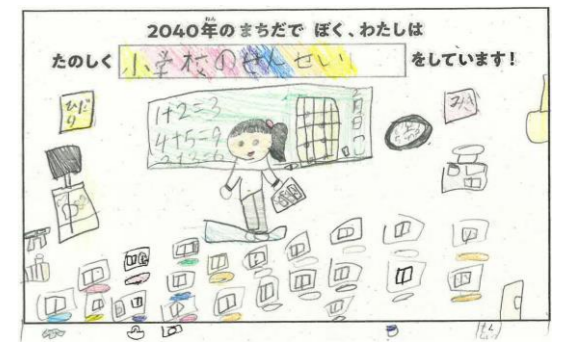 2040年のまちだで ぼく、わたしは
ねん
たのしく 小学校のせんせい をしています!
ひだり
みぎ
1+2=3
4+5=9
3+3=6
月
日